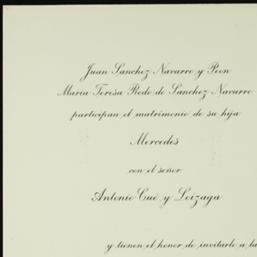 Juan Sanchez Navarro y Peon
Maria Teresa Redo de Sanchez Navarro
participan el matrimonio de su hija
Mercedes
con el señor
Antonio Cué y Loizaga
y tienen el honor de invitarle a la